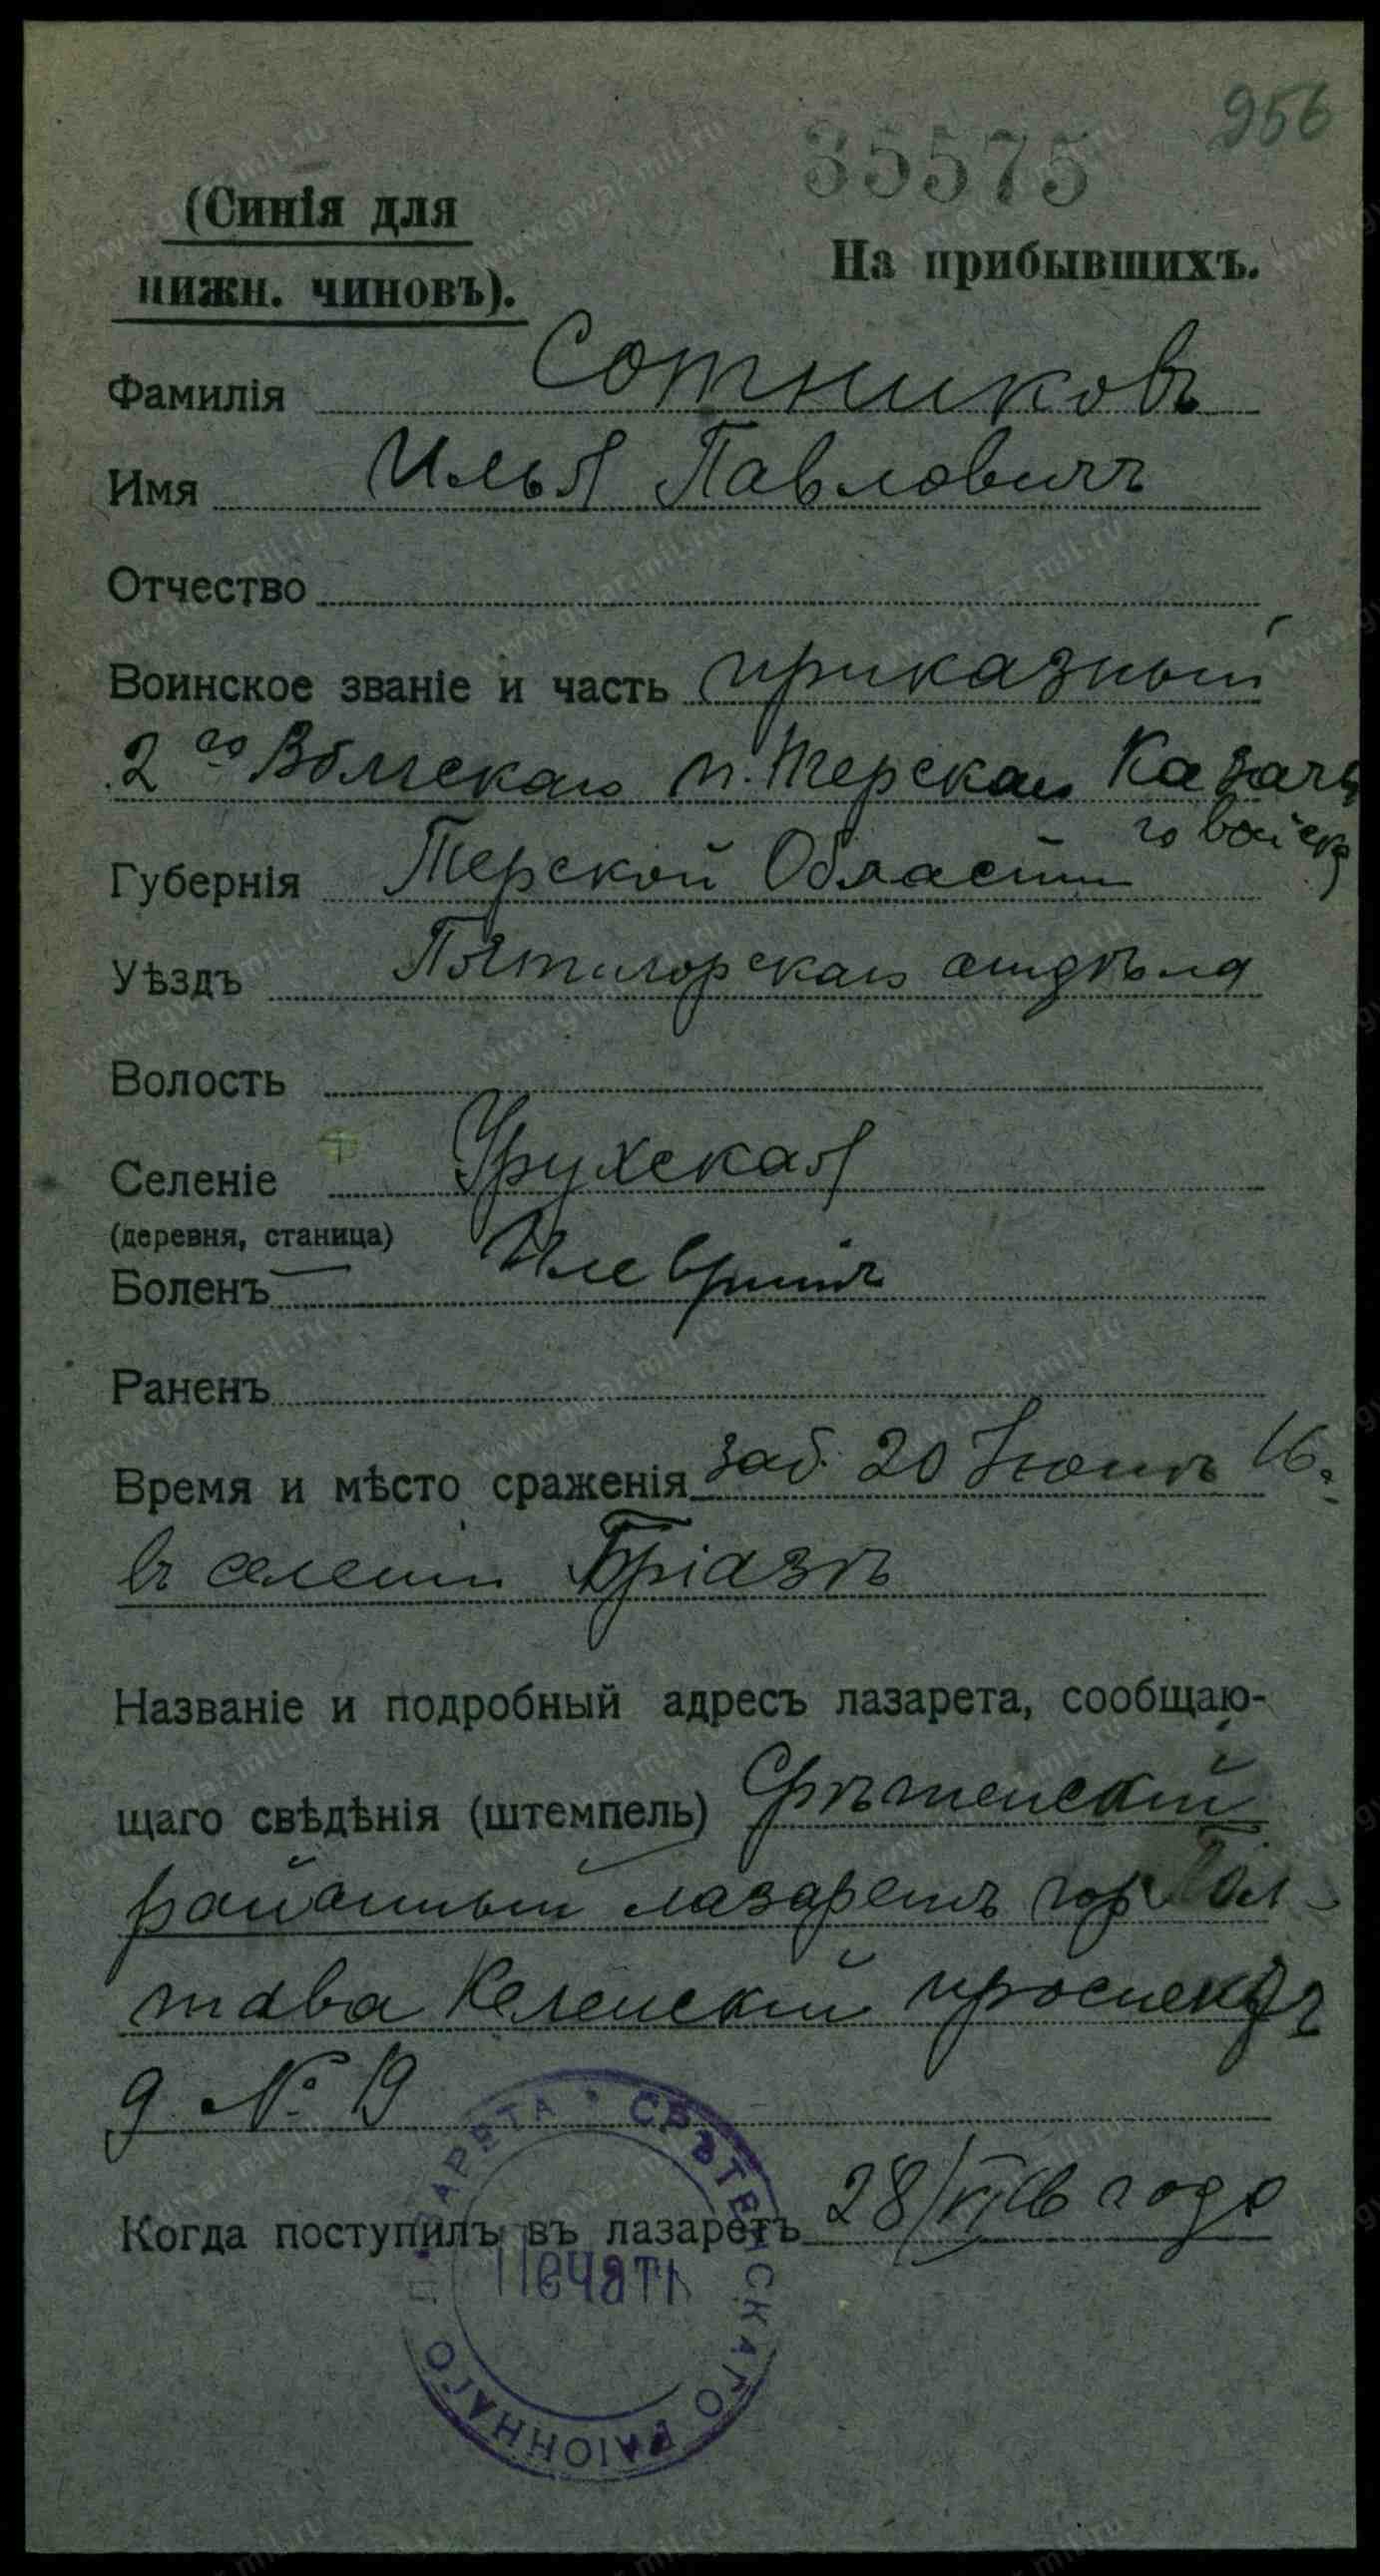 956
35575
(Синія для
нижн. чиновъ).
На прибывшихъ.
Фамилія Сотниковъ
Имя Илья Павловичъ
Отчество
Воинское званіе и часть приказный
2го Волгскаго п. Терскаго Казачь
го войска
Губернія Терской Области
Уѣздъ Пятигорскаго отдѣла
Волость
Селеніе Урухская
(деревня, станица)
Боленъ Плевритъ
Раненъ
Время и мѣсто сраженія заб. 20 Іюня 16 г.
въ селеніи Бріазѣ
Названіе и подробный адресъ лазарета, сообщаю-
щаго свѣдѣнія (штемпель) Срѣтенскій
районный лазаретъ гор Пол-
тава Келенскій проспектъ
д № 19
ЛАЗАРЕТА * СРѢТЕНСКАГО РАІОННАГО
Печать
Когда поступилъ въ лазаретъ 28/VI 16 года